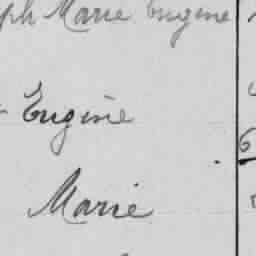 ph Marie Eugène
Eugène
6
Marie